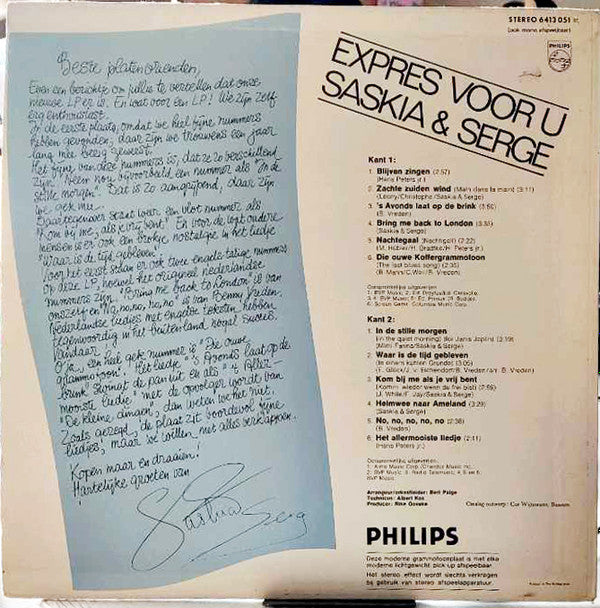 Beste platenvrienden,
Even een berichtje om jullie te vertellen dat onze
nieuwe LP er is. En wat voor een LP! We zijn zelf
erg enthousiast.
In de eerste plaats, omdat we heel fijne nummers
hebben gevonden, daar zijn we trouwens een jaar
lang mee bezig geweest.
Het fijne van deze nummers is, dat ze zo verschillend
zijn. Neem nou bijvoorbeeld een nummer als "In de
stille morgen". Dat is zo aangrijpend, daar zijn
we gek mee.
Daartegenover staat weer een vlot nummer als
"Kom bij me als je vrij bent". En voor de wat oudere
mensen is er ook een brokje nostalgie in het liedje
"Waar is de tijd gebleven".
Voor het eerst staan er ook twee engels-talige nummers
op deze LP, hoewel het originele nederlandse
nummers zijn. "Bring me back to London" is van
onszelf en "No, no, no, no, no" is van Benny Vreden.
Nederlandse liedjes met engelse teksten hebben
tegenwoordig in het buitenland nogal succes,
vandaar.
O ja, een heel gek nummer is "Die ouwe
grammofoon". Het liedje "'s Avonds laat op de
brink" swingt de pan uit en als "'t Aller-
mooiste liedje" niet de opvolger wordt van
"De kleine dingen", dan weten we het niet.
Zoals gezegd, de plaat zit boordevol fijne
liedjes, maar we willen niet alles verklappen.
Kopen maar en draaien!
Hartelijke groeten van
Saskia Serge
STEREO 6413 051
(ook mono afspeelbaar)
PHILIPS
EXPRES VOOR U
SASKIA & SERGE
Kant 1:
1 Blijven zingen (2:57)
(Hans Peters jr.)
2 Zachte zuiden wind (Main dans la main) (3:11)
(Leroy/Christophe/Saskia & Serge)
3 's Avonds laat op de brink (1:50)
(B. Vreden)
4 Bring me back to London (3:35)
(Saskia & Serge)
5 Nachtegaal (Nachtigall) (2:22)
(M. Hübler/H. Bradtke/H. Peters jr.)
6 Die ouwe Koffergrammofoon
(The last blues song) (2:35)
(B. Mann/C. Weil/B. Vreden)
Oorspronkelijke uitgevers:
Kant 2:
1 In de stille morgen
(In the quiet morning) (for Janis Joplin) (3:19)
(Mimi Farina/Saskia & Serge)
2 Waar is de tijd gebleven
(In einem kühlen Grunde) (3:05)
(F. Glück/J. v. Eichendorf/B. Vreden/arr. B. Vreden)
3 Kom bij me als je vrij bent
(Komm wieder wenn du frei bist) (2:59)
(J. White/F. Jay/Saskia & Serge)
4 Heimwee naar Ameland (3:29)
(Saskia & Serge)
5 No, no, no, no, no (2:38)
(B. Vreden)
6 Het allermooiste liedje (2:11)
(Hans Peters jr.)
Oorspronkelijke uitgevers:
Arrangeur/orkestleider: Bert Paige
Technicus: Albert Kos
Producer:
PHILIPS
Deze moderne grammofoonplaat is met elke
moderne lichtgewicht pick up afspeelbaar.
Het stereo effect wordt slechts verkregen
bij gebruik van stereo afspeelapparatuur.